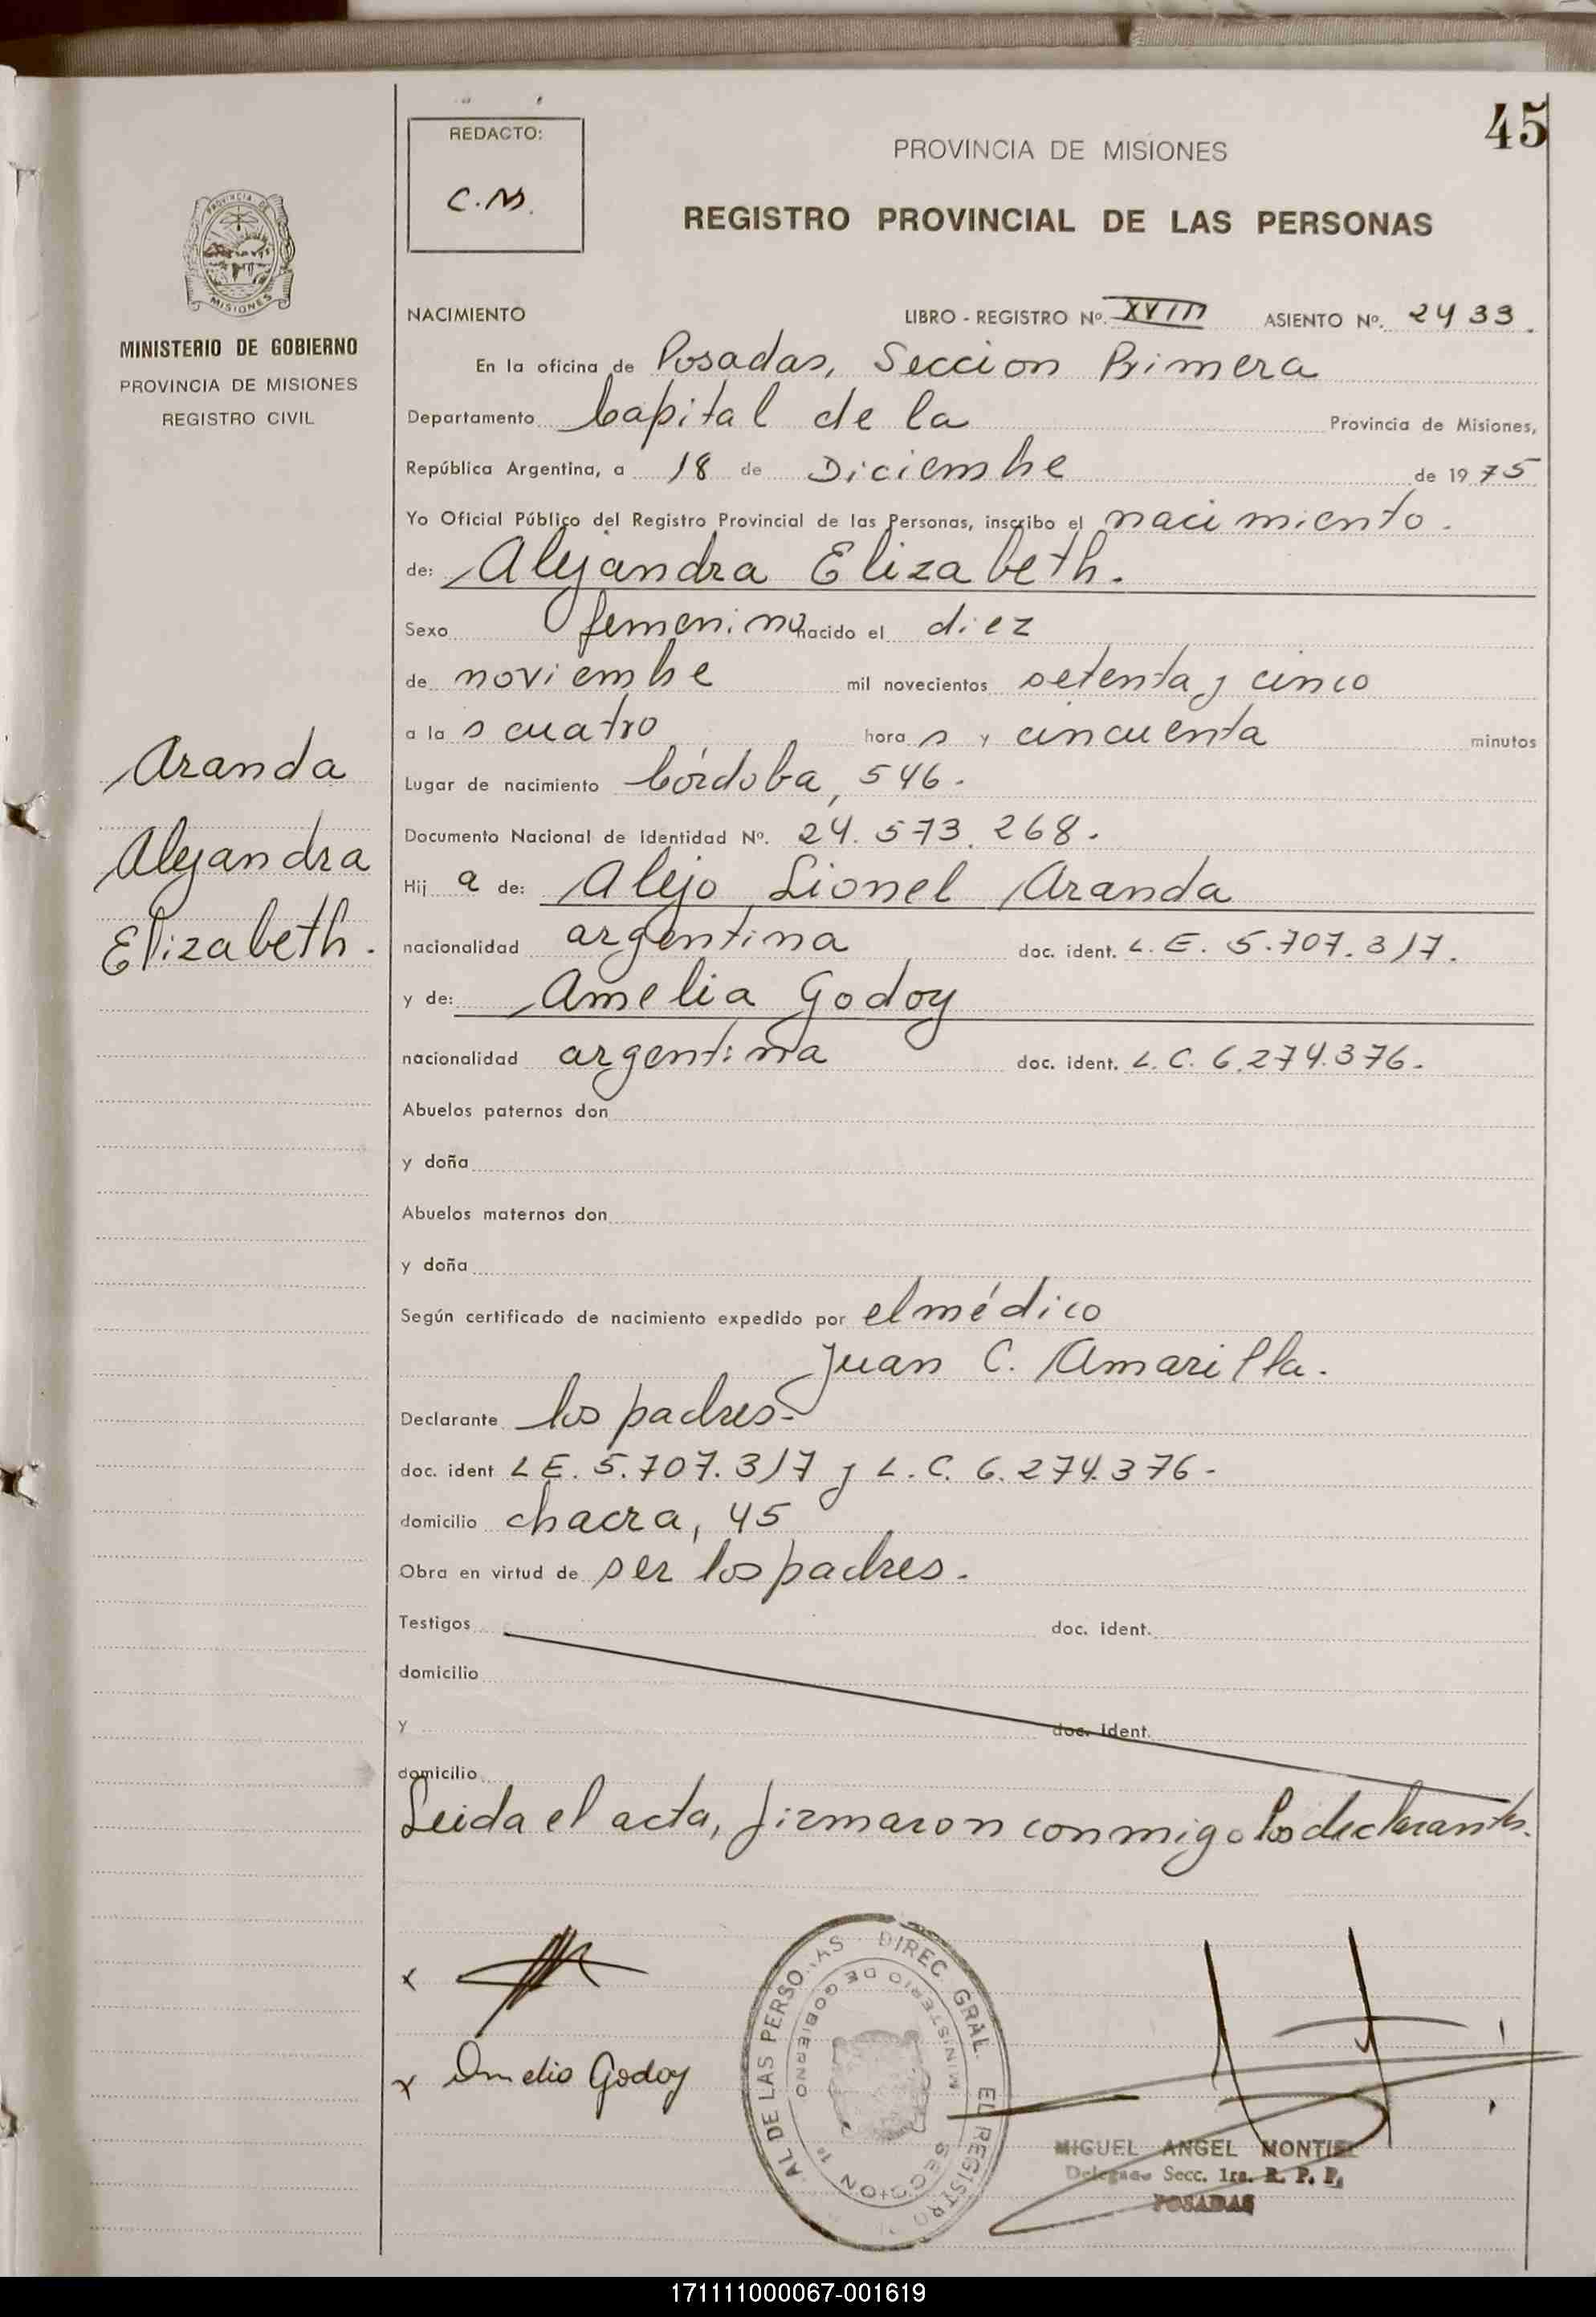 45
REDACTO:
C.M.
PROVINCIA DE MISIONES
REGISTRO PROVINCIAL DE LAS PERSONAS
PROVINCIA DE
MISIONES
MINISTERIO DE GOBIERNO
PROVINCIA DE MISIONES
REGISTRO CIVIL
NACIMIENTO LIBRO - REGISTRO Nº. XVIII ASIENTO Nº. 2433.
En la oficina de Posadas, Seccion Primera
Departamento Capital de la Provincia de Misiones,
República Argentina, a 18 de Diciembre de 1975
Yo Oficial Público del Registro Provincial de las Personas, inscribo el nacimiento.
de: Alejandra Elizabeth.
Sexo femenino nacido el diez
de noviembre mil novecientos setenta y cinco
a la s cuatro hora s y cincuenta minutos
Lugar de nacimiento Córdoba, 546.
Documento Nacional de Identidad Nº. 24.573.268.
Hij a de: Alejo Lionel Aranda
nacionalidad argentina doc. ident. L.E. 5.707.317.
y de: Amelia Godoy
nacionalidad argentina doc. ident. L.C. 6.274.376.
Abuelos paternos don
y doña
Abuelos maternos don
y doña
Según certificado de nacimiento expedido por el médico
Juan C. Amarilla.
Declarante los padres.-
doc. ident L.E. 5.707.317 y L.C. 6.274.376-
domicilio chacra, 45
Obra en virtud de ser los padres.
Testigos doc. ident.
domicilio
y doc. ident.
domicilio
Leida el acta, firmaron conmigo los declarantes.
Aranda
Alejandra
Elizabeth.
x
x Amelia Godoy
DIREC. GRAL. EL REGISTRO AL DE LAS PERSONAS
MINISTERIO DE GOBIERNO
SECCION 1ª
MIGUEL ANGEL MONTIEL
Delegado Secc. 1ra. R. P. P.
POSADAS
171111000067-001619